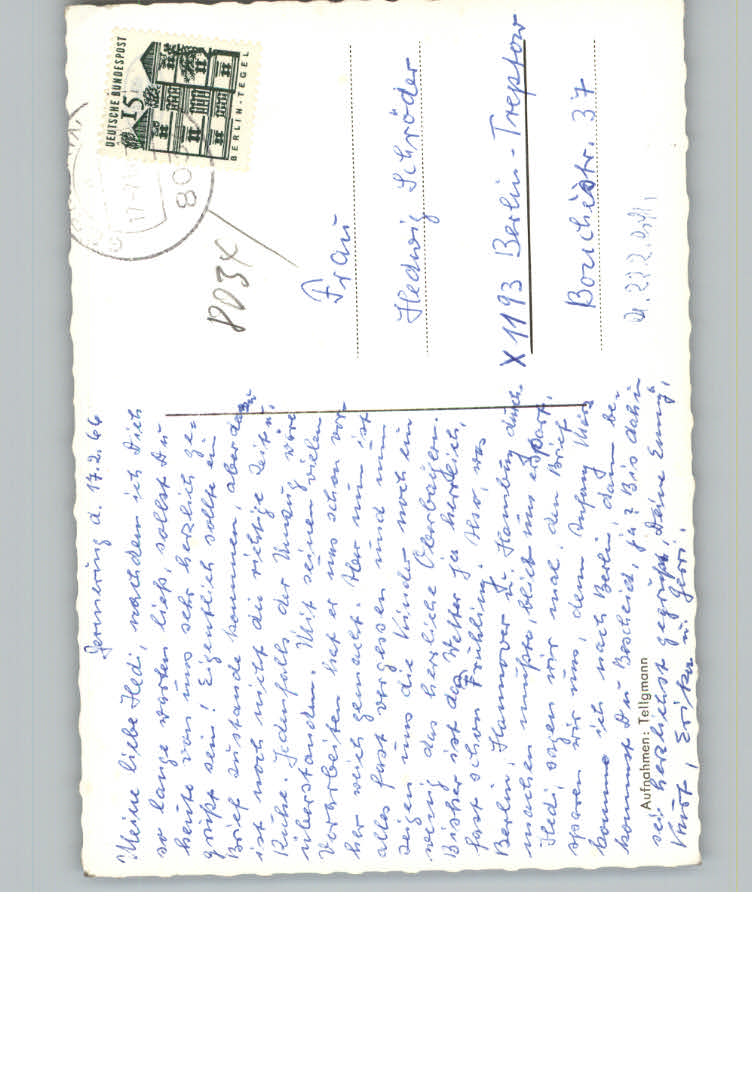 Germering d. 17.2.66
Meine liebe Hedi, nachdem ich Dich
so lange warten ließ, sollst Du
heute von uns sehr herzlich ge-
grüßt sein! Eigentlich sollte ein
Brief zustande kommen, aber dazu
ist noch nicht die richtige Zeit u.
Ruhe. Jedenfalls der Umzug wäre
überstanden. Mit seinen vielen
Vorarbeiten hat er uns schon vor-
her weich gemacht. Aber nun ist
alles fast vergessen und nun
zeigen uns die Kinder noch ein
wenig das herrliche Oberbayern.
Bisher ist das Wetter ja herrlich,
fast schon Frühling. Also, was
Berlin, Hannover u. Hamburg durch-
machen mußte, blieb uns erspart.
Hedi, sagen wir mal, den Brief
sparen wir uns, denn Anfang März
komme ich nach Berlin, dann be-
kommst Du Bescheid, ja? Bis dahin
sei herzlichst gegrüßt, Deine Emmy,
Kurt, Erika u. Gerri.
Aufnahmen: Tellgmann
DEUTSCHE BUNDESPOST
15
BERLIN-TEGEL
803
8034
Frau
Hedwig Schröder
X 1193 Berlin-Treptow
Bouchéstr. 37